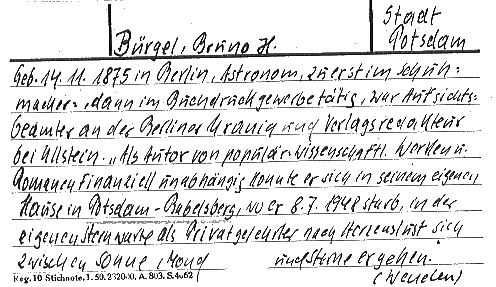 Stadt
Bürgel, Bruno H. Potsdam
Geb. 14. 11. 1875 in Berlin, Astronom, zuerst im Schuh=
macher=, dann im Buchdruckgewerbe tätig, war Aufsichts-
beamter an der Berliner Urania und Verlagsredakteur
bei Ullstein. „Als Autor von populär-wissenschaftl. Werken u.
Romanen finanziell unabhängig konnte er sich in seinem eigenen
Hause in Potsdam-Babelsberg, wo er 8.7.1948 starb, in der
eigenen Sternwarte als Privatgelehrter nach Herzenslust sich
zwischen Sonne, Mond und Sterne ergehen.
Reg. 10 Stichnote. 1. 50. 232000. A. 803. S. 4062 (Wenden)